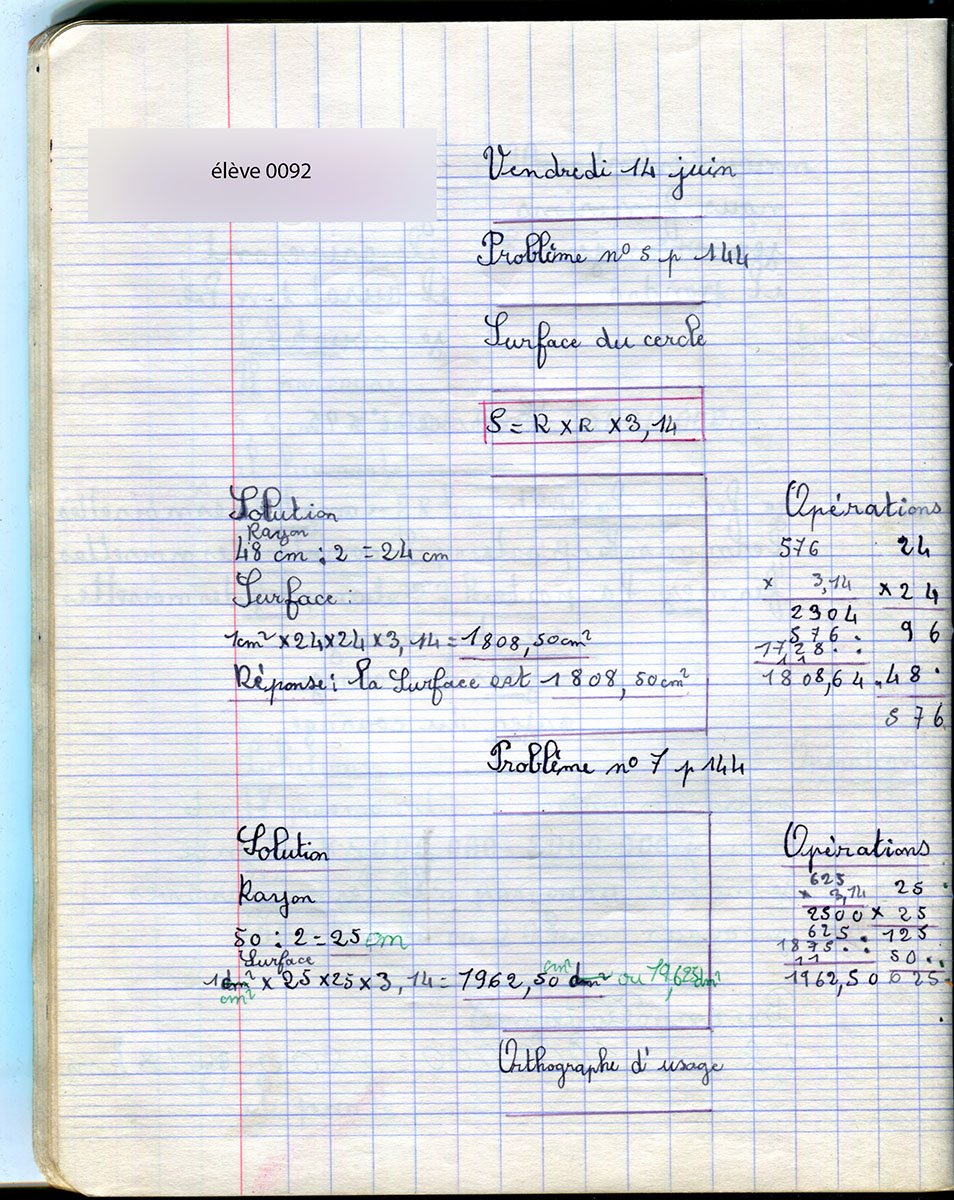 élève 0092
Vendredi 14 juin
Problème n° 5 p 144
Surface du cercle
S = R x R x 3,14
Solution
Rayon
48 cm : 2 = 24 cm
Surface :
1cm² x 24 x 24 x 3,14 = 1808,50 cm²
Réponse : la Surface est 1808,50 cm²
Opérations
576
x 3,14
2304
576 .
1728 . .
11
1808,64
24
x 24
96
48 .
576
Problème n° 7 p 144
Solution
Rayon
50 : 2 = 25 cm
Surface
1 dm² cm² x 25 x 25 x 3,14 = 1962,50 cm² dm² ou 19,625 dm²
Opérations
625
x 3,14
2500
625 .
1875 . .
11
1962,50
25
x 25
125
50 .
625
Orthographe d'usage